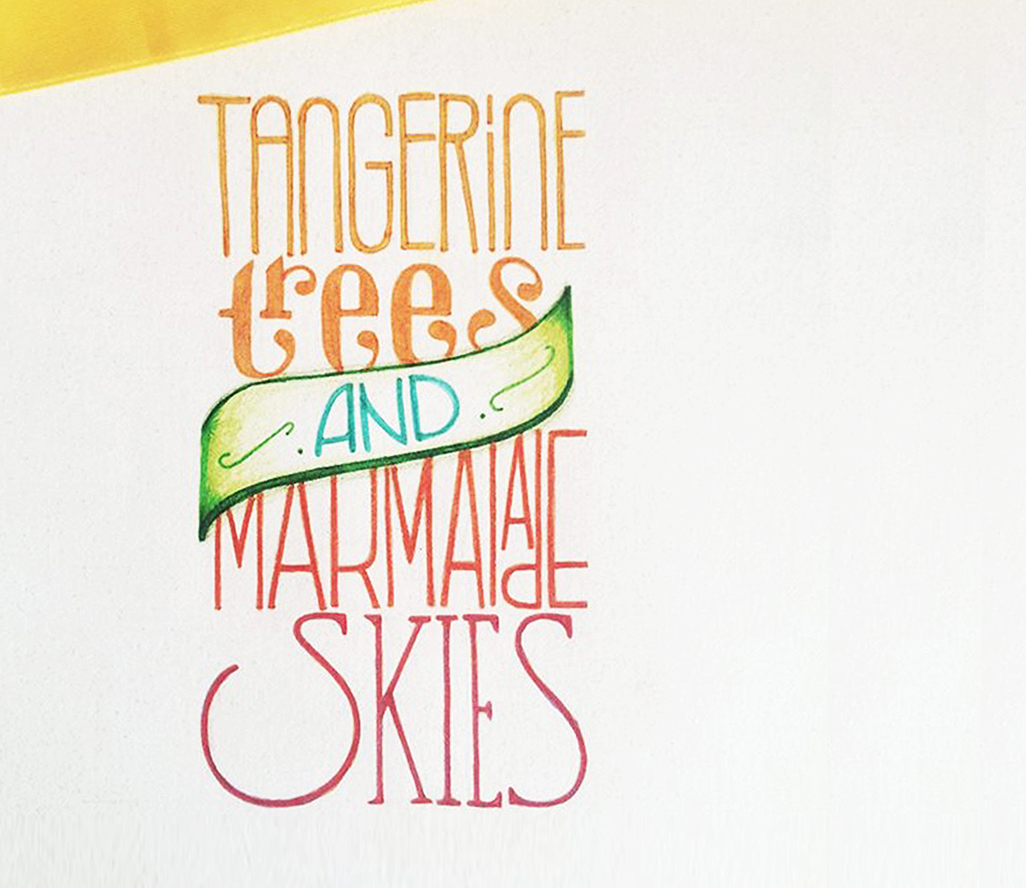 TANGERiNE
trees
AND
MARMALAdE
SKIES